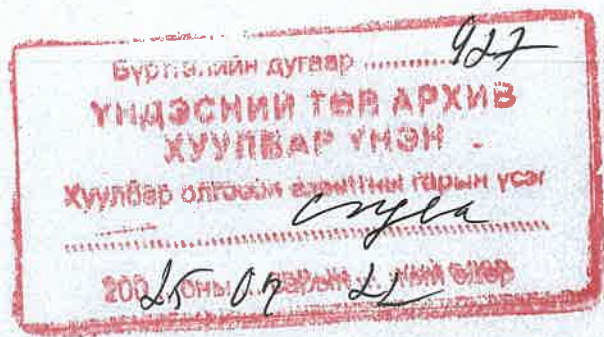 Бүртгэлийн дугаар ........... 927
ҮНДЭСНИЙ ТӨВ АРХИВ
ХУУЛБАР ҮНЭН
Хуулбар олгосон ажилтны гарын үсэг
200 25 оны 07 сарын 22 ний өдөр